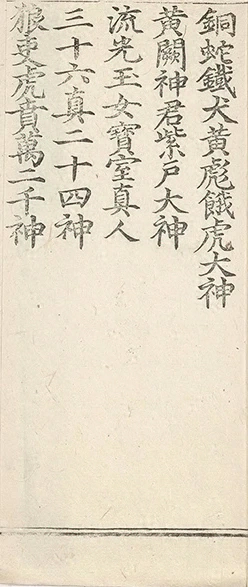 銅蛇鐵犬黃彪餓虎大神
黃闕神君紫戶大神
流光玉女寶室真人
三十六真二十四神
狼吏虎賁萬二千神